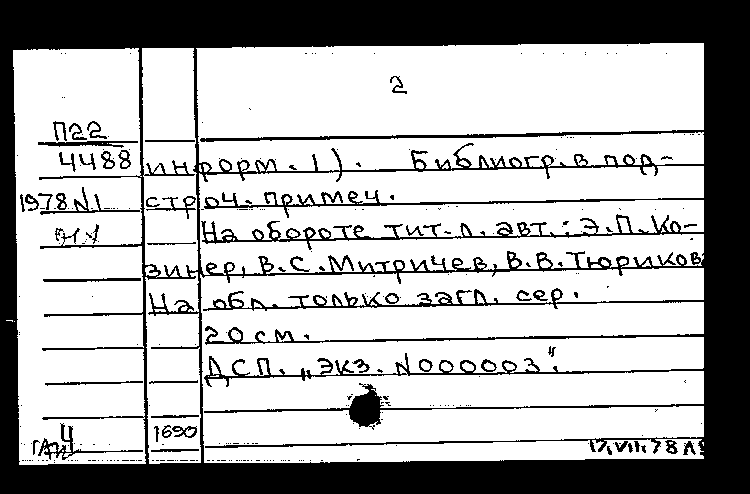 2
П22
4488 информ. 1). Библиогр. в под-
1978 N1 строч. примеч.
На обороте тит. л. авт.: Э.П. Ко-
зинер, В.С. Митричев, В.В. Тюриков
На обл. только загл. сер.
20 см.
ДСП. „Экз. N000003".
4 1690 17.VII.78